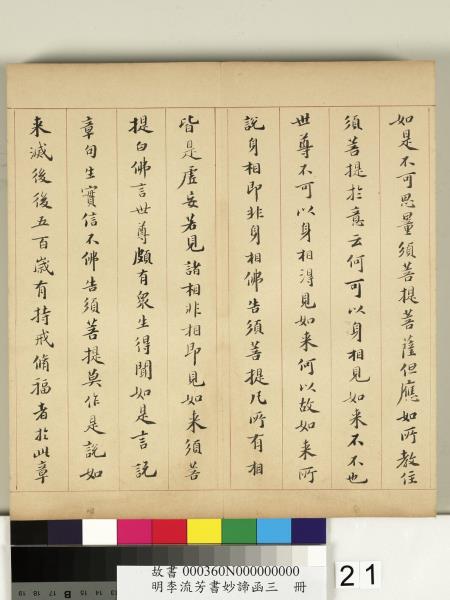 如是不可思量須菩提菩薩但應如所教住
須菩提於意云何可以身相見如来不不也
世尊不可以身相得見如来何以故如来所
說身相即非身相佛告須菩提凡所有相
皆是虛妄若見諸相非相即見如来須菩
提白佛言世尊頗有衆生得聞如是言說
章句生實信不佛告須菩提莫作是說如
来滅後後五百歲有持戒脩福者於此章
故書 000360N000000000
明李流芳書妙諦函三 冊
21